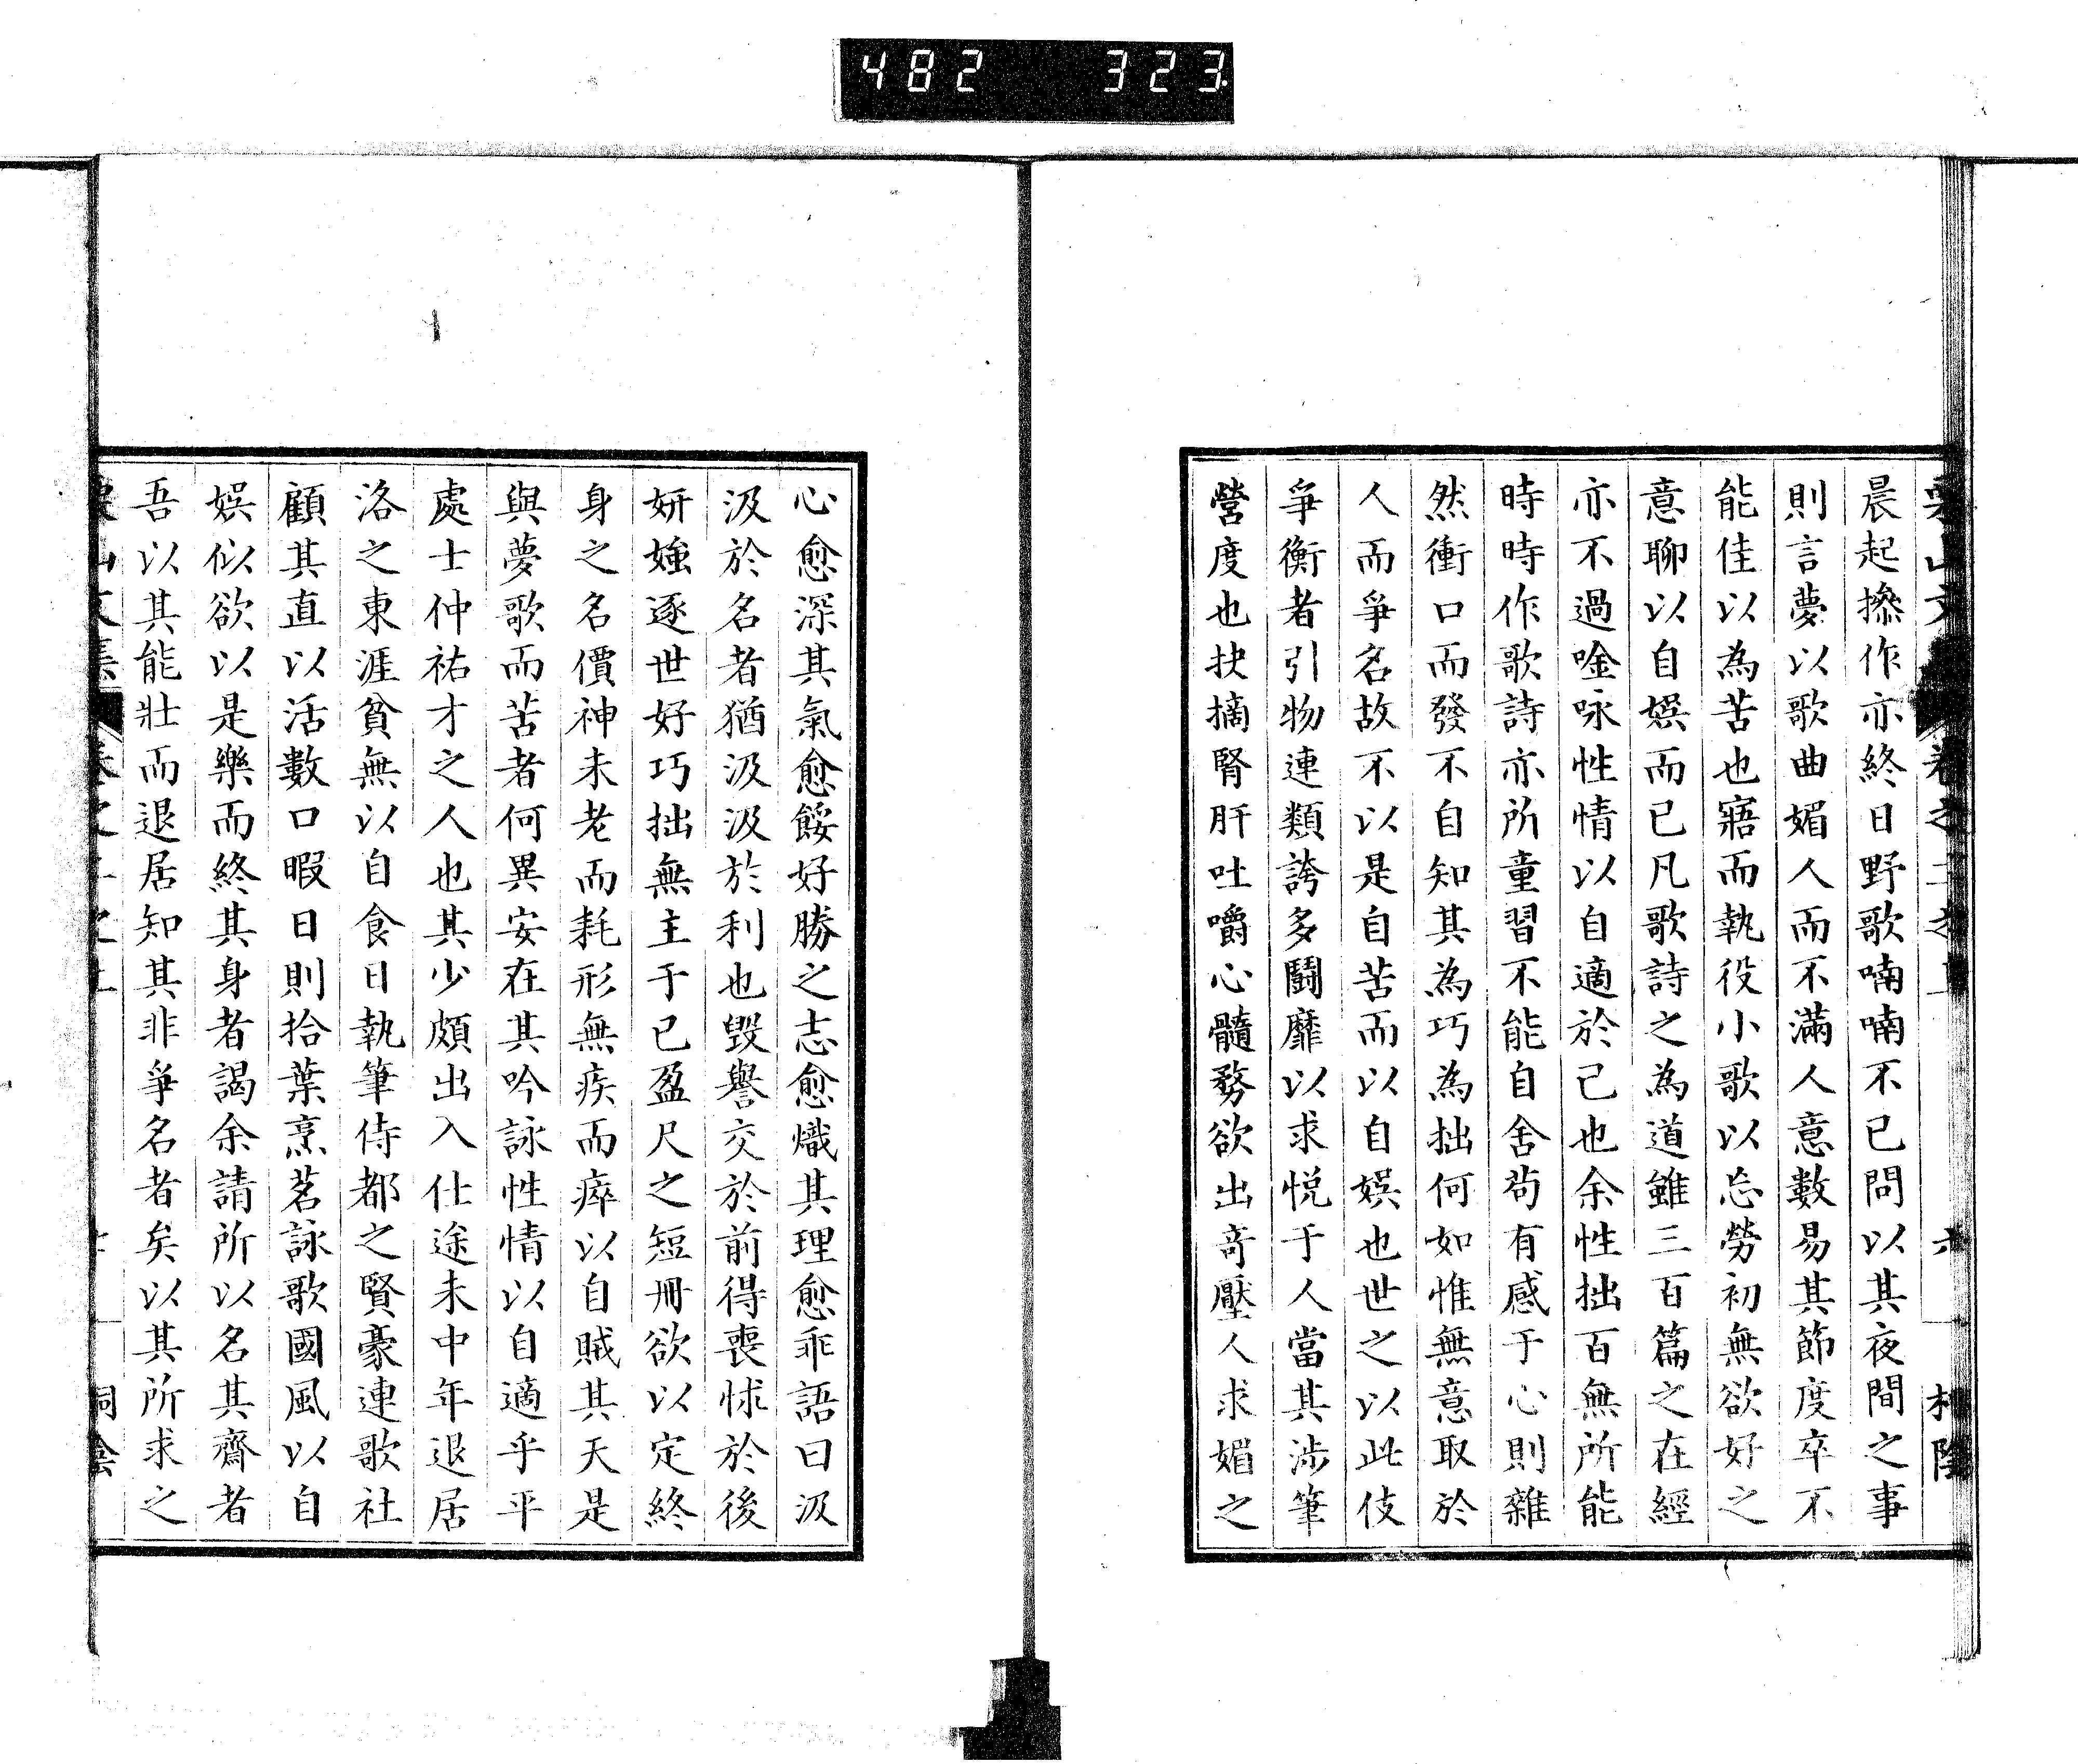 482 323
晨起搽作亦終日野歌喃喃不已問以其夜間之事
則言夢以歌曲媚人而不滿人意數易其節度卒不
能佳以為苦也寤而執役小歌以忘勞初無欲好之
意聊以自娛而已凡歌詩之為道雖三百篇之在經
亦不過唫咏性情以自適於己也余性拙百無所能
時時作歌詩亦所童習不能自舍苟有感于心則雜
然衝口而發不自知其為巧為拙何如惟無意取於
人而爭名故不以是自苦而以自娛也世之以此伎
爭衡者引物連類誇多鬪靡以求悦于人當其涉筆
營度也抉摘腎肝吐嚼心髓務欲出奇壓人求媚之
心愈深其氣愈餒好勝之志愈熾其理愈乖語曰汲
汲於名者猶汲汲於利也毀譽交於前得喪怵於後
妍媸逐世好巧拙無主于已盈尺之短冊欲以定終
身之名價神未老而耗形無疾而瘁以自賊其天是
與夢歌而苦者何異安在其吟詠性情以自適乎平
處士仲祐才之人也其少頗出入仕途未中年退居
洛之東涯貧無以自食日執筆侍都之賢豪連歌社
顧其直以活數口暇日則拾葉烹茗詠歌國風以自
娛似欲以是樂而終其身者謁余請所以名其齋者
吾以其能壯而退居知其非爭名者矣以其所求之